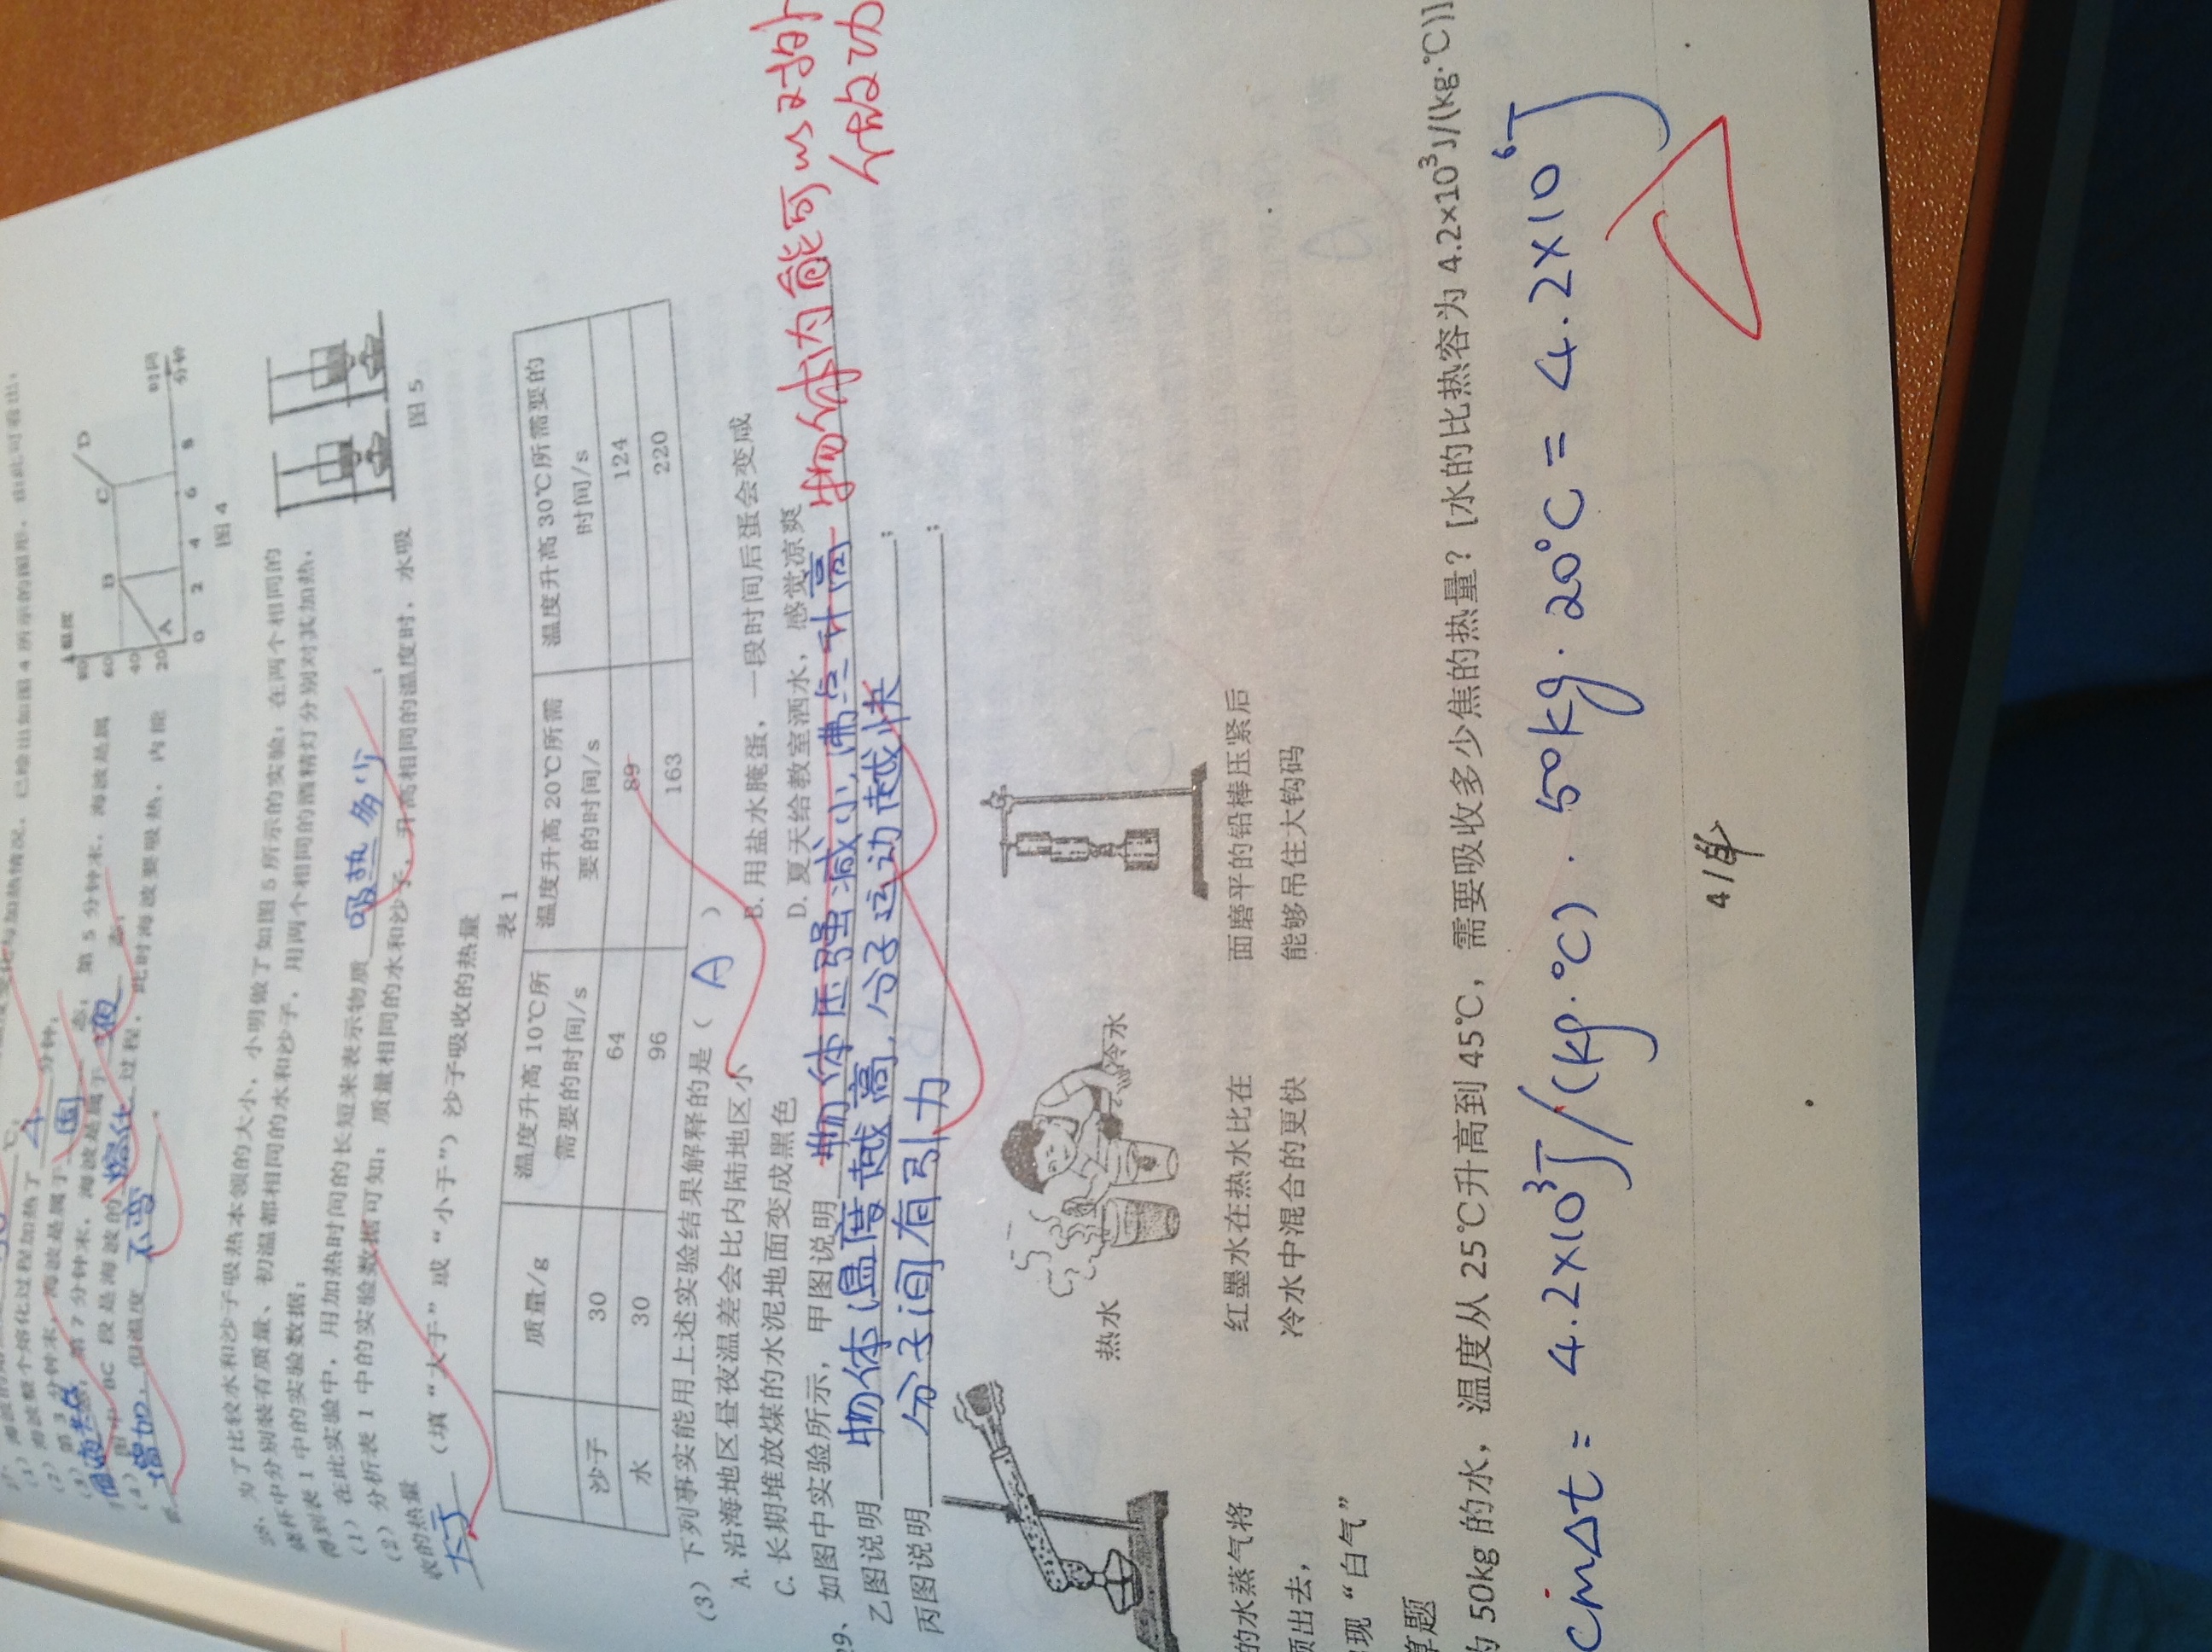 温度变化与加热情况，已绘出如图4所示的图形，由此可看出：
(1) 海波的熔点是 ℃；
(2) 海波整个熔化过程加热了 4 分钟；
(3) 第3分钟末，海波是属于 固 态；第5分钟末，海波是属
于 固液共存 态；第7分钟末，海波是属于 液 态；
(4) 图中 BC 段是海波的 熔化 过程，此时海波要吸热，内能
要 增加，但温度 不变 。
温度
80
60
40
20
A
B
C
D
0 2 4 6 8
时间
分钟
图4
28、为了比较水和沙子吸热本领的大小，小明做了如图5所示的实验：在两个相同的
烧杯中分别装有质量、初温都相同的水和沙子，用两个相同的酒精灯分别对其加热，
得到表1中的实验数据：
(1) 在此实验中，用加热时间的长短来表示物质 吸热多少 ；
(2) 分析表1中的实验数据可知：质量相同的水和沙子，升高相同的温度时，水吸
收的热量
大于 （填“大于”或“小于”）沙子吸收的热量
图5
表1
质量/g 温度升高10℃所需要的时间/s 温度升高20℃所需要的时间/s 温度升高30℃所需要的时间/s
沙子 30 64 89 124
水 30 96 163 220
(3) 下列事实能用上述实验结果解释的是（ A ）
A. 沿海地区昼夜温差会比内陆地区小 B. 用盐水腌蛋，一段时间后蛋会变咸
C. 长期堆放煤的水泥地面变成黑色 D. 夏天给教室洒水，感觉凉爽
29、如图中实验所示，甲图说明 物体压强减小,沸点升高 物体内能可以对外
做功
乙图说明 物体温度越高,分子运动越快 ；
丙图说明 分子间有引力 ；
热水 冷水
的水蒸气将 红墨水在热水比在 面磨平的铅棒压紧后
顶出去， 冷水中混合的更快 能够吊住大钩码
出现“白气”
算题
为50kg的水，温度从25℃升高到45℃，需要吸收多少焦的热量？[水的比热容为4.2×10³J/(kg·℃)]
cmΔt = 4.2×10³J/(kg·℃) · 50kg · 20℃ = 4.2×10⁶J
4 /